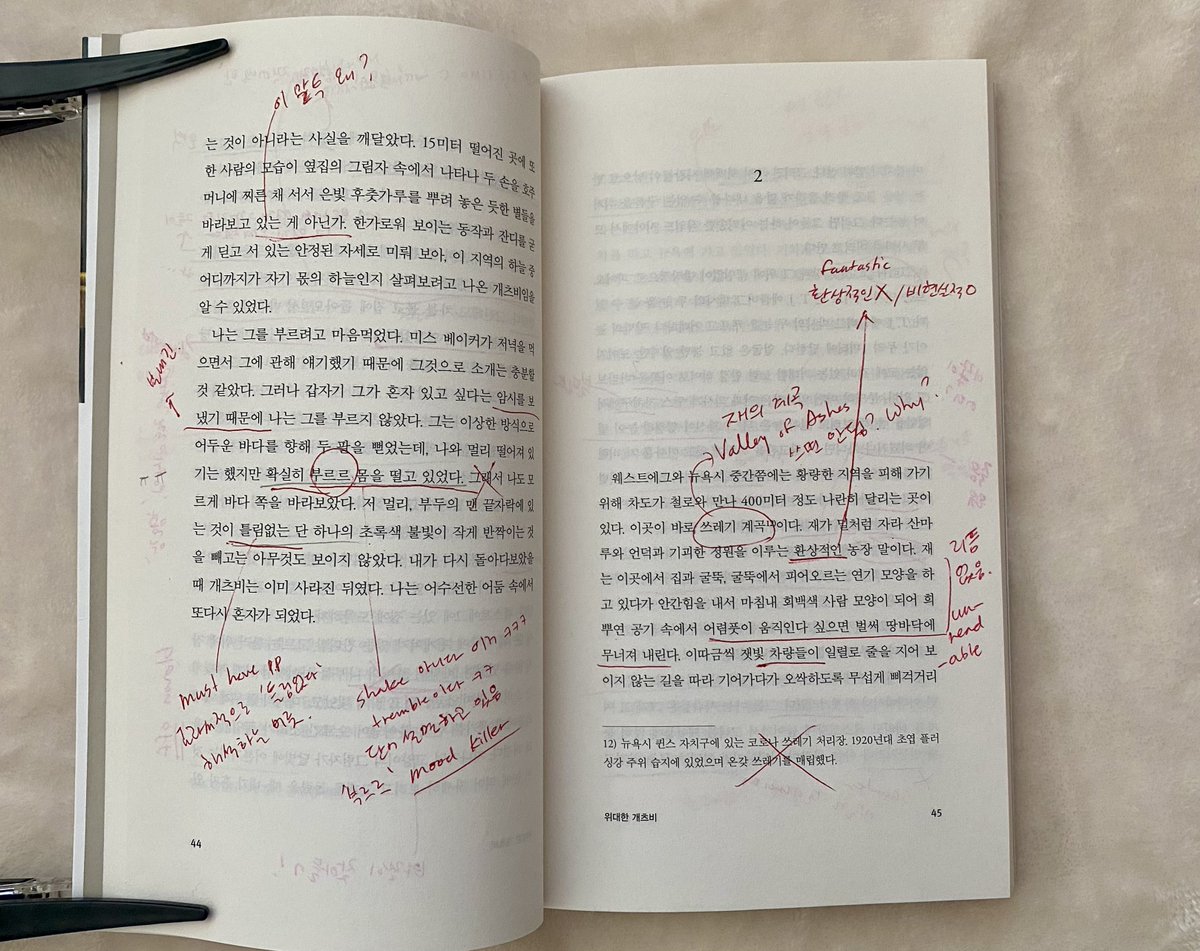 이 말투 왜?
는 것이 아니라는 사실을 깨달았다. 15미터 떨어진 곳에 또
한 사람의 모습이 옆집의 그림자 속에서 나타나 두 손을 호주
머니에 찌른 채 서서 은빛 후춧가루를 뿌려 놓은 듯한 별들을
바라보고 있는 게 아닌가. 한가로워 보이는 동작과 잔디를 굳
게 딛고 서 있는 안정된 자세로 미뤄 보아, 이 지역의 하늘 중
어디까지가 자기 몫의 하늘인지 살펴보려고 나온 개츠비임을
알 수 있었다.
나는 그를 부르려고 마음먹었다. 미스 베이커가 저녁을 먹
으면서 그에 관해 얘기했기 때문에 그것으로 소개는 충분할
것 같았다. 그러나 갑자기 그가 혼자 있고 싶다는 암시를 보
냈기 때문에 나는 그를 부르지 않았다. 그는 이상한 방식으로
어두운 바다를 향해 두 팔을 뻗었는데, 나와 멀리 떨어져 있
기는 했지만 확실히 부르르 몸을 떨고 있었다. 그래서 나도 모
르게 바다 쪽을 바라보았다. 저 멀리, 부두의 맨 끝자락에 있
는 것이 틀림없는 단 하나의 초록색 불빛이 작게 반짝이는 것
을 빼고는 아무것도 보이지 않았다. 내가 다시 돌아다보았을
때 개츠비는 이미 사라진 뒤였다. 나는 어수선한 어둠 속에서
또다시 혼자가 되었다.
must have pp
기계적으로 '틀림없다'
해석하는 버릇.
shake 아니다 이거 ㅋㅋㅋ
tremble이다 ㅋㅋ
단어 설명하고 있음
'부르르' mood killer
44
2
fantastic
환상적인X / 비현실적O
재의 계곡
Valley of Ashes
쓰면 안돼? Why?
웨스트에그와 뉴욕시 중간쯤에는 황량한 지역을 피해 가기
위해 차도가 철로와 만나 400미터 정도 나란히 달리는 곳이
있다. 이곳이 바로 쓰레기 계곡12)이다. 재가 밀처럼 자라 산마
루와 언덕과 기괴한 정원을 이루는 환상적인 농장 말이다. 재
는 이곳에서 집과 굴뚝, 굴뚝에서 피어오르는 연기 모양을 하
고 있다가 안간힘을 내서 마침내 회백색 사람 모양이 되어 희
뿌연 공기 속에서 어렴풋이 움직인다 싶으면 벌써 땅바닥에
무너져 내린다. 이따금씩 잿빛 차량들이 일렬로 줄을 지어 보
이지 않는 길을 따라 기어가다가 오싹하도록 무섭게 삐걱거리
리듬
없음.
un-
read
-able
12) 뉴욕시 퀸스 자치구에 있는 코로나 쓰레기 처리장. 1920년대 초엽 플러
싱강 주위 습지에 있었으며 온갖 쓰레기를 매립했다.
위대한 개츠비
45